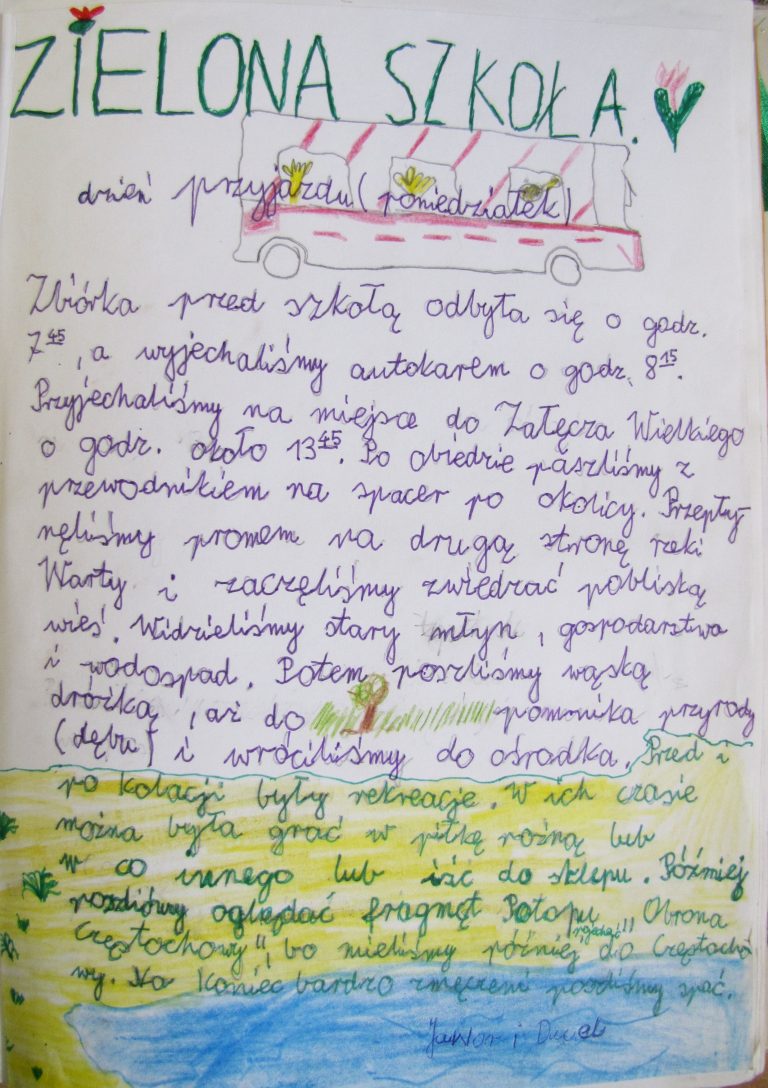 ZIELONA SZKOŁA.
dzień przyjazdu (poniedziałek)
Zbiórka przed szkołą odbyła się o godz.
7 45, a wyjechaliśmy autokarem o godz. 8 15.
Przyjechaliśmy na miejsce do Załęcza Wielkiego
o godz. około 13 45. Po obiedzie poszliśmy z
przewodnikiem na spacer po okolicy. Przepły-
nęliśmy promem na drugą stronę rzeki
Warty i zaczęliśmy zwiedzać pobliską
wieś. Widzieliśmy stary młyn, gospodarstwa
i wodospad. Potem poszliśmy wąską
dróżką, aż do pomonika przyrody
(dębu) i wróciliśmy do ośrodka. Przed i
po kolacji były rekreacje. W ich czasie
można była grać w piłkę nożną lub
w co innego lub iść do sklepu. Później
poszliśmy oglądać fragmęt Potopu „Obrona
Częstochowy", bo mieliśmy później pojechać do Częstocho
wy. Na koniec bardzo zmęczeni poszliśmy spać.
i